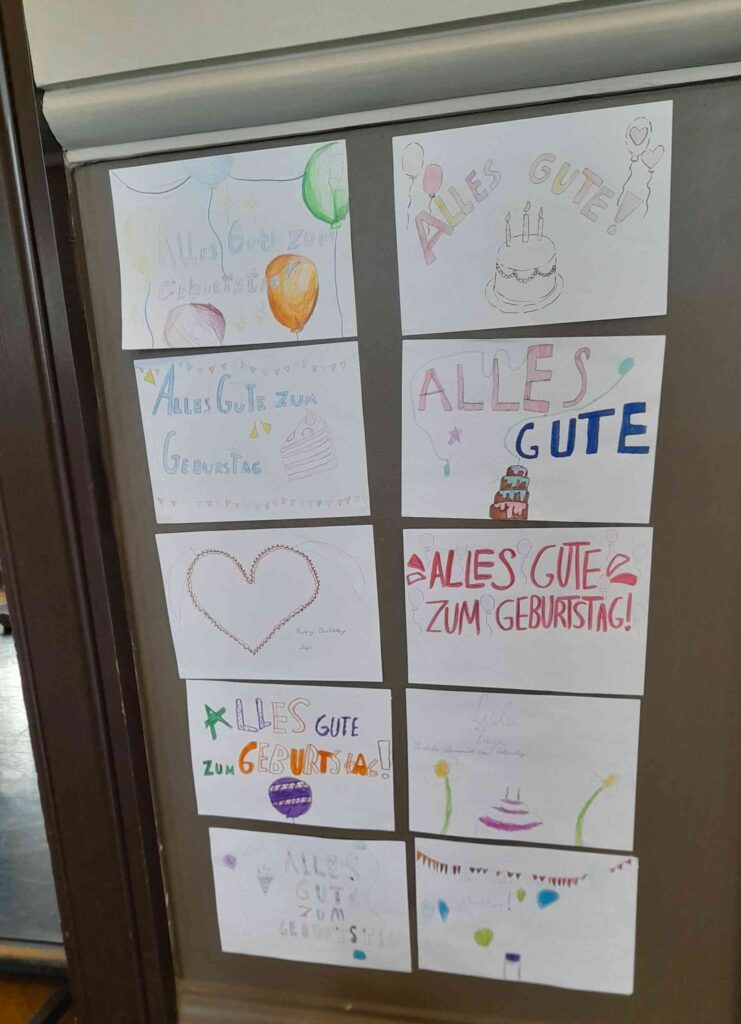 ALLES GUTE ZUM
GEBURTSTAG
ALLES GUTE!
ALLES GUTE ZUM
GEBURSTAG
ALLES
GUTE
Happy Birthday
ALLES GUTE
ZUM GEBURTSTAG!
ALLES GUTE
ZUM GEBURTSTAG!
Liebe
ALLES
GUTE
ZUM
GEBURTSTAG